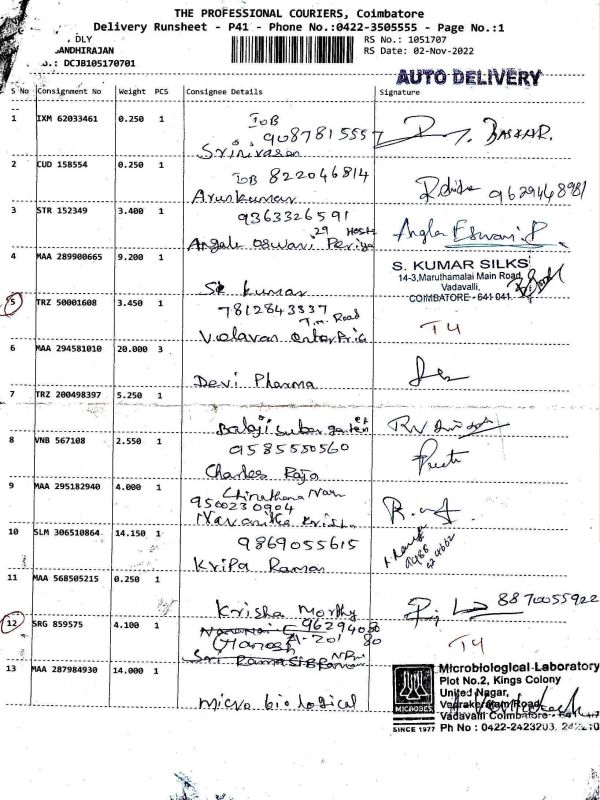 THE PROFESSIONAL COURIERS, Coimbatore
Delivery Runsheet - P41 - Phone No.:0422-3505555 - Page No.:1
DLY
GANDHIRAJAN
.: DCJB105170701
RS No.: 1051707
RS Date: 02-Nov-2022
AUTO DELIVERY
S No Consignment No Weight PCS Consignee Details Signature
1 IXM 62033461 0.250 1
IOB
9087815557
Srinivasan
BASKAR.
2 CUD 158554 0.250 1
IOB 822046814
Arunkumar
9629448981
3 STR 152349 3.400 1
9363326591
29
Angale oswari Periya
Angla Eswari.P
4 MAA 289900665 9.200 1
SK Kumar
S. KUMAR SILKS
14-3,Maruthamalai Main Road,
Vadavalli,
COIMBATORE - 641 041.
5 TRZ 50001608 3.450 1
7812843337
T.M. Road
Velavan enterPric
T4
6 MAA 294581010 20.000 3
Devi Pharma
7 TRZ 200498397 5.250 1
Balaji
8 VNB 567108 2.550 1
9585550560
Charles Raja
9 MAA 295182940 4.000 1
9500230904
Navanika Krish
10 SLM 306510864 14.150 1
9869055615
Kripa Raman
11 MAA 568505215 0.250 1
Krisha Morthy
8870055922
12 SRG 859575 4.100 1
96294080
80
A-201
T4
13 MAA 287984930 14.000 1
micro biological
MICROBES
SINCE 1977
Microbiological Laboratory
Plot No.2, Kings Colony
United Nagar,
Veerakeralam Road,
Vadavalli Coimbatore
Ph No : 0422-2423203,